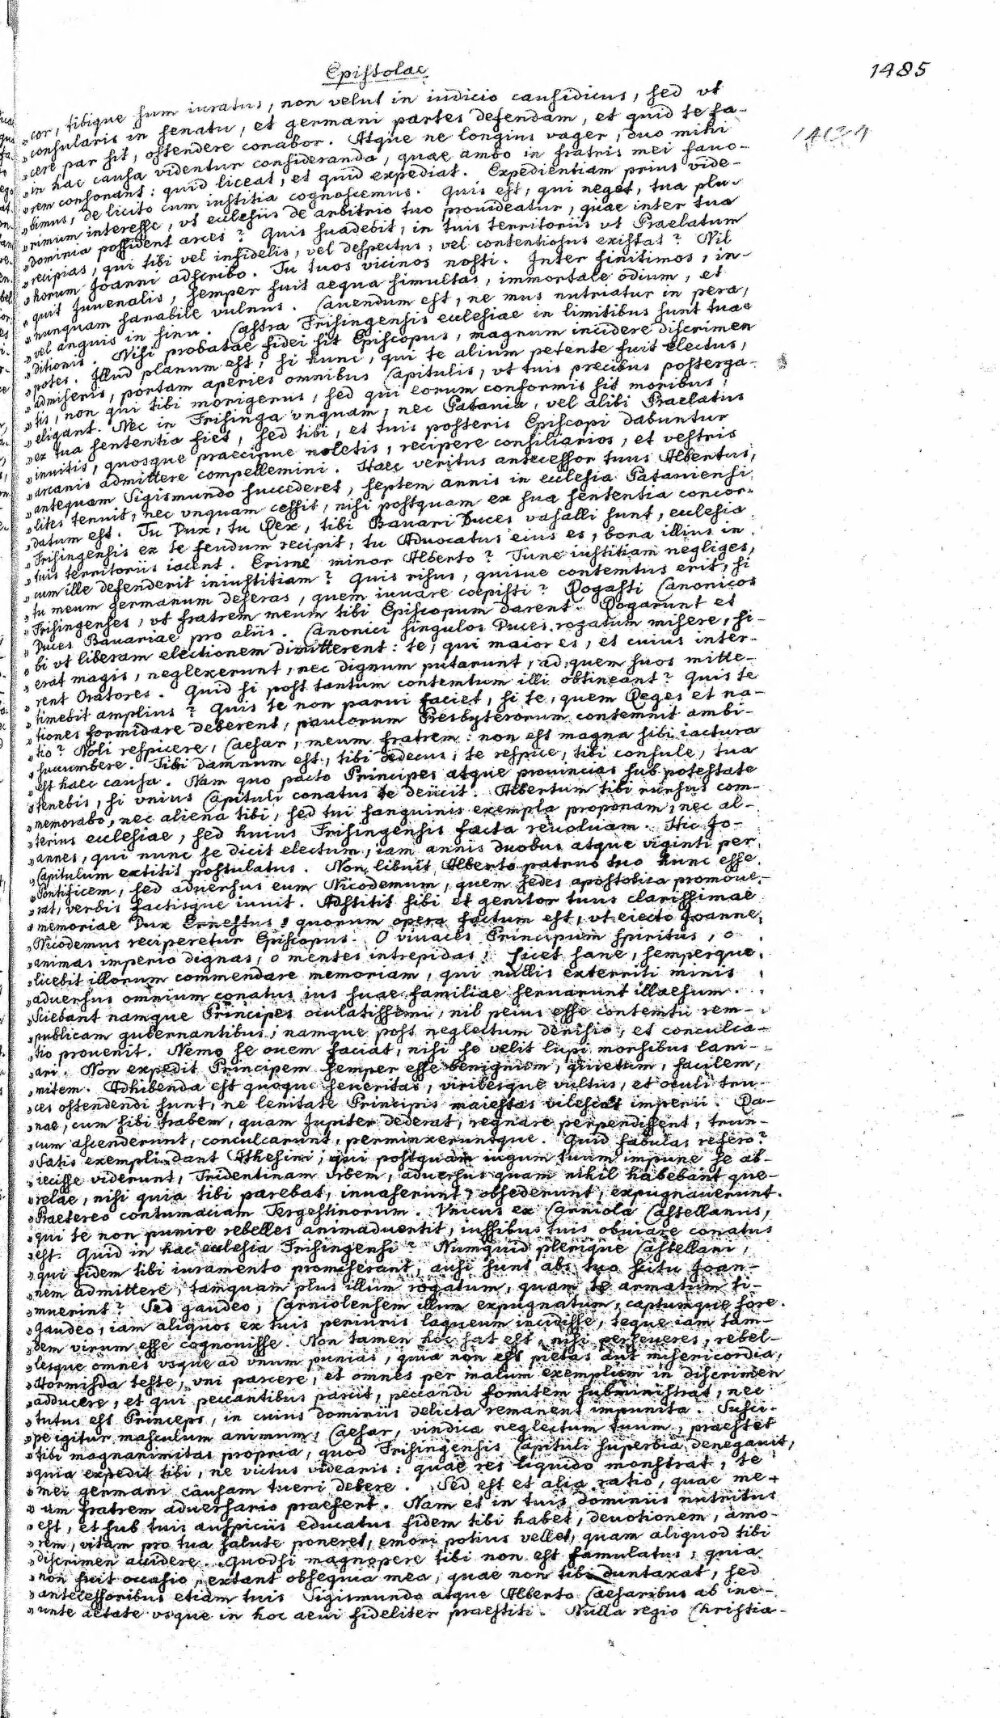 Epistolae
1485
»cor, tibique sum iuratus, non velut in iudicio causidicus, sed vt
»consularis in senatu, et germani partes defendam, et quid te fa-
»cere par sit, ostendere conabor. Atque ne longius vager, duo mihi
»in hac causa videntur consideranda, quae ambo in fratris mei fauo-
»rem consonant: quid liceat, et quid expediat. Expedientiam prius vide-
»bimus, de licito cum iustitia cognoscemus. Quis est, qui neget, tua plu-
»rimum interesse, vt ecclesiis de arbitrio tuo prouideatur, quae inter tua
»Dominia possident arces? Quis suadebit, in tuis territoriis vt Praelatum
»recipias, qui tibi vel infidelis, vel despectus, vel contentiosus existat? Nil
»horum Joanni adscribo. Tu tuos vicinos nosti. Inter finitimos, in-
»quit Juuenalis, semper fuit aequa simultas, immortale odium, et
»nunquam sanabile vulnus. Cauendum est, ne mus nutriatur in pera,
»vel anguis in sinu. Castra Frisingensis ecclesiae in limitibus sunt tuae
»ditionis. Nisi probatae fidei sit Episcopus, magnum incidere discrimen
»potes. Illud planum est, si hunc, qui te alium petente fuit electus,
»admiseris, portam aperies omnibus Capitulis, vt tuis precibus posterga-
»tis, non qui tibi morigerus, sed qui eorum conformis sit moribus,
»eligant. Nec in Frisinga vnquam, nec Patauia, vel alibi Praelatus
»ex tua sententia fiet, sed tibi, et tuis posteris Episcopi dabuntur
»inuitis, quosque praecipue noletis, recipere consiliarios, et vestris
»arcanis admittere compellemini. Haec veritus antecessor tuus Albertus,
»antequam Sigismundo succederet, septem annis in ecclesia Patauiensi
»lites tenuit, nec vnquam cessit, nisi postquam ex sua sententia concor-
»datum est. Tu Dux, tu Rex, tibi Bauari Duces vasalli sunt, ecclesia
»Frisingensis ex te feudum recipit, tu Aduocatus eius es, bona illius in
»tuis territoriis iacent. Erisne minor Alberto? Tune iustitiam negliges,
»cum ille defenderit iniustitiam? Quis risus, quisue contemtus erit, si
»tu meum germanum deseras, quem iuuare coepisti? Rogasti Canonicos
»Frisingenses, vt fratrem meum tibi Episcopum darent. Rogarunt et
»Duces Bauariae pro aliis. Canonici singulos Duces rogatum misere, si-
»bi vt liberam electionem dimitterent: te, qui maior es, et cuius inter-
»erat magis, neglexerunt, nec dignum putarunt, ad quem suos mitte-
»rent Oratores. Quid si post tantum contemtum illi obtineant? Quis te
»timebit amplius? Quis te non parui faciet, si te, quem Reges et na-
»tiones formidare deberent, paucorum Presbyterorum contemnit ambi-
»tio? Noli respicere, Caesar, meum fratrem: non est magna sibi iactura
»succumbere. Tibi damnum est, tibi dedecus, te respice, tibi consule, tua
»est haec causa. Nam quo pacto Principes atque prouincias sub potestate
»tenebis, si vnius Capituli conatus te deiicit. Albertum tibi rursus com-
»memorabo, nec aliena tibi, sed tui sanguinis exempla proponam, nec al-
»terius ecclesiae, sed huius Frisingensis facta reuoluam. Hic Jo-
»annes, qui nunc se dicit electum, iam annis duobus atque viginti per
»Capitulum extitit postulatus. Non libuit Alberto patruo tuo hunc esse
»Pontificem, sed aduersus eum Nicodemum, quem sedes apostolica promoue-
»rat, verbis factisque iuuit. Adstitit sibi et genitor tuus clarissimae
»memoriae Dux Ernestus, quorum opera factum est, vt eiecto Joanne,
»Nicodemus reciperetur Episcopus. O viuaces Principum spiritus, o
»animas imperio dignas, o mentes intrepidas! Licet sane, semperque
»licebit illorum commendare memoriam, qui nullis exterriti minis
»aduersus omnium conatus ius suae familiae seruarunt illaesum.
»Sciebant namque Principes oculatissimi, nil peius esse contemtu rem-
»publicam gubernantibus, namque post neglectum derisio, et conculca-
»tio prouenit. Nemo se ouem faciat, nisi se velit lupi morsibus lani-
»ari. Non expedit Principem semper esse benignum, quietum, facilem,
»mitem. Adhibenda est quoque seueritas, viribusque vultus, et oculi tru-
»ces ostendendi sunt, ne lenitate Principis maiestas vilescat imperii. Ra-
»nae, cum sibi trabem, quam Jupiter dederat, regnare perpendissent, trun-
»cum ascenderunt, conculcarunt, perminxeruntque. Quid fabulas refero?
»Satis exempli dant Athesini, qui postquam iugum tuum impune se ab-
»iecisse viderunt, Tridentinam vrbem, aduersus quam nihil habebant que-
»relae, nisi quia tibi parebat, inuaserunt, obsederunt, expugnauerunt.
»Praetereo contumaciam Tergestinorum. Vnicus ex Carniola Castellanus,
»qui te non punire rebelles animaduertit, iussibus tuis obuiare conatus
»est. Quid in hac ecclesia Frisingensi? Numquid plerique Castellani,
»qui fidem tibi iuramento promiserant, ausi sunt abs tuo scitu Joan-
»nem admittere, tamquam plus illum rogatum, quam te armatum ti-
»muerint? Sed gaudeo, Carniolensem illum expugnatum, captumque fore.
»Gaudeo, iam aliquos ex tuis periuriis laqueum incidisse, teque iam tan-
»dem virum esse cognouisse. Non tamen hoc sat est, nisi perseueres, rebel-
»lesque omnes vsque ad vnum punias, quia non est pietas aut misericordia,
»Hormisda teste, vni parcere, et omnes per malum exemplum in discrimen
»adducere, et qui peccantibus parcit, peccandi fomitem subministrat, nec
»tutus est Princeps, in cuius dominiis delicta remanent impunita. Susci-
»pe igitur masculum animum, Caesar, vindica neglectum tuum, praestet
»tibi magnanimitas propria, quod Frisingensis Capituli superbia denegauit,
»quia expedit tibi, ne victus videaris: quae res liquido monstrat, te
»mei germani causam tueri debere. Sed est et alia ratio, quae me-
»um fratrem aduersario praefert. Nam et in tuis dominiis nutritus
»est, et sub tuis auspiciis educatus fidem tibi habet, deuotionem, amo-
»rem, vitam pro tua salute poneret, emori potius vellet, quam aliquod tibi
»discrimen accidere. Quodsi magnopere tibi non est famulatus, quia
»non fuit occasio, extant obsequia mea, quae non tibi duntaxat, sed
»antecessoribus etiam tuis Sigismundo atque Alberto Caesaribus ab ine-
»unte aetate vsque in hoc aeui fideliter praestiti. Nulla regio Christia-